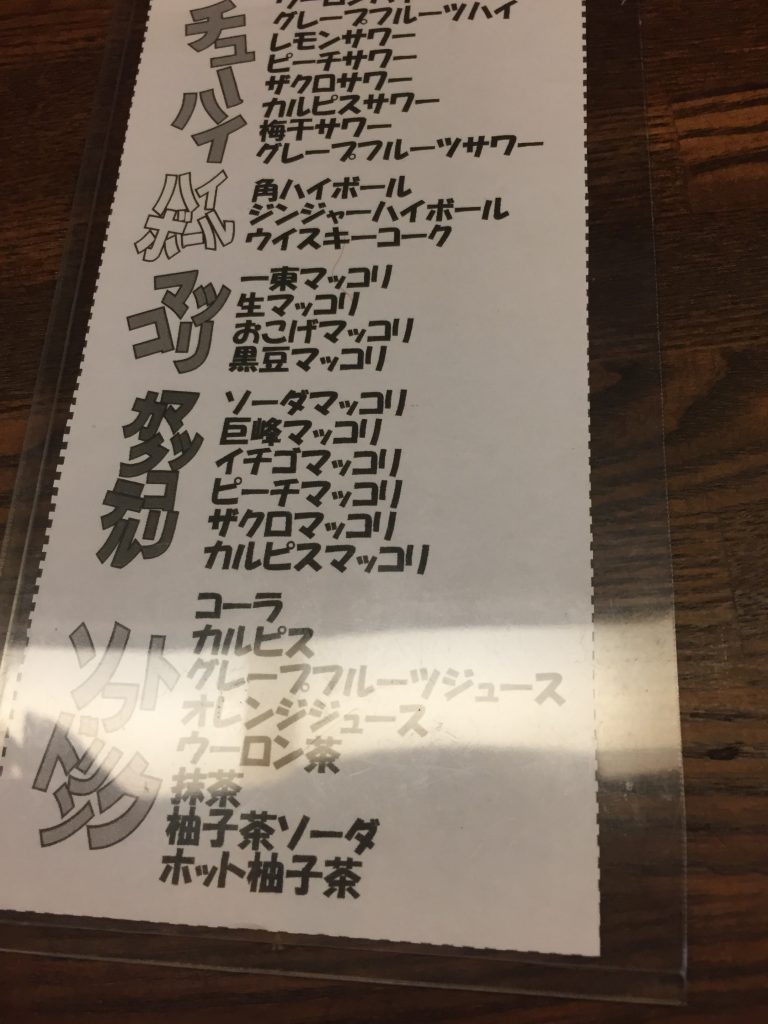 チューハイ
グレープフルーツハイ
レモンサワー
ピーチサワー
ザクロサワー
カルピスサワー
梅干サワー
グレープフルーツサワー
ハイボール
角ハイボール
ジンジャーハイボール
ウイスキーコーク
マッコリ
一東マッコリ
生マッコリ
おこげマッコリ
黒豆マッコリ
マッコリカクテル
ソーダマッコリ
巨峰マッコリ
イチゴマッコリ
ピーチマッコリ
ザクロマッコリ
カルピスマッコリ
ソフトドリンク
コーラ
カルピス
グレープフルーツジュース
オレンジジュース
ウーロン茶
抹茶
柚子茶ソーダ
ホット柚子茶